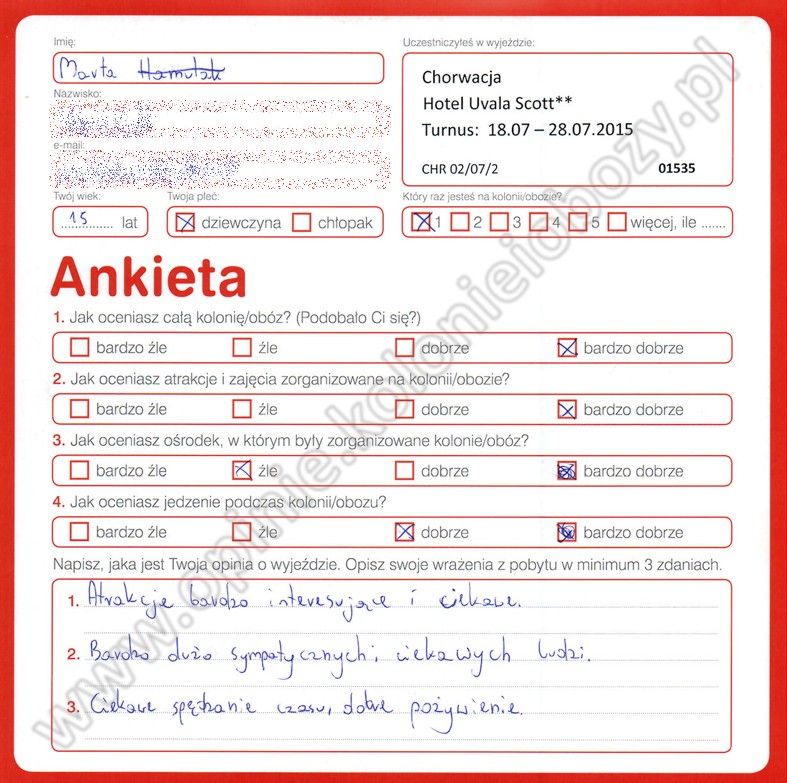 Imię:
Marta Hamulak
Uczestniczyłeś w wyjeździe:
Chorwacja
Hotel Uvala Scott**
Turnus: 18.07 – 28.07.2015
CHR 02/07/2 01535
Nazwisko:
e-mail:
Twój wiek:
15 lat
Twoja płeć:
dziewczyna chłopak
Który raz jesteś na kolonii/obozie?
1 2 3 4 5 więcej, ile .......
Ankieta
1. Jak oceniasz całą kolonię/obóz? (Podobało Ci się?)
bardzo źle źle dobrze bardzo dobrze
2. Jak oceniasz atrakcje i zajęcia zorganizowane na kolonii/obozie?
bardzo źle źle dobrze bardzo dobrze
3. Jak oceniasz ośrodek, w którym były zorganizowane kolonie/obóz?
bardzo źle źle dobrze bardzo dobrze
4. Jak oceniasz jedzenie podczas kolonii/obozu?
bardzo źle źle dobrze bardzo dobrze
Napisz, jaka jest Twoja opinia o wyjeździe. Opisz swoje wrażenia z pobytu w minimum 3 zdaniach.
1. Atrakcje bardzo interesujące i ciekawe.
2. Bardzo dużo sympatycznych i ciekawych ludzi.
3. Ciekawe spędzanie czasu, dobre pożywienie.
www.opinie.kolonieiobozy.pl